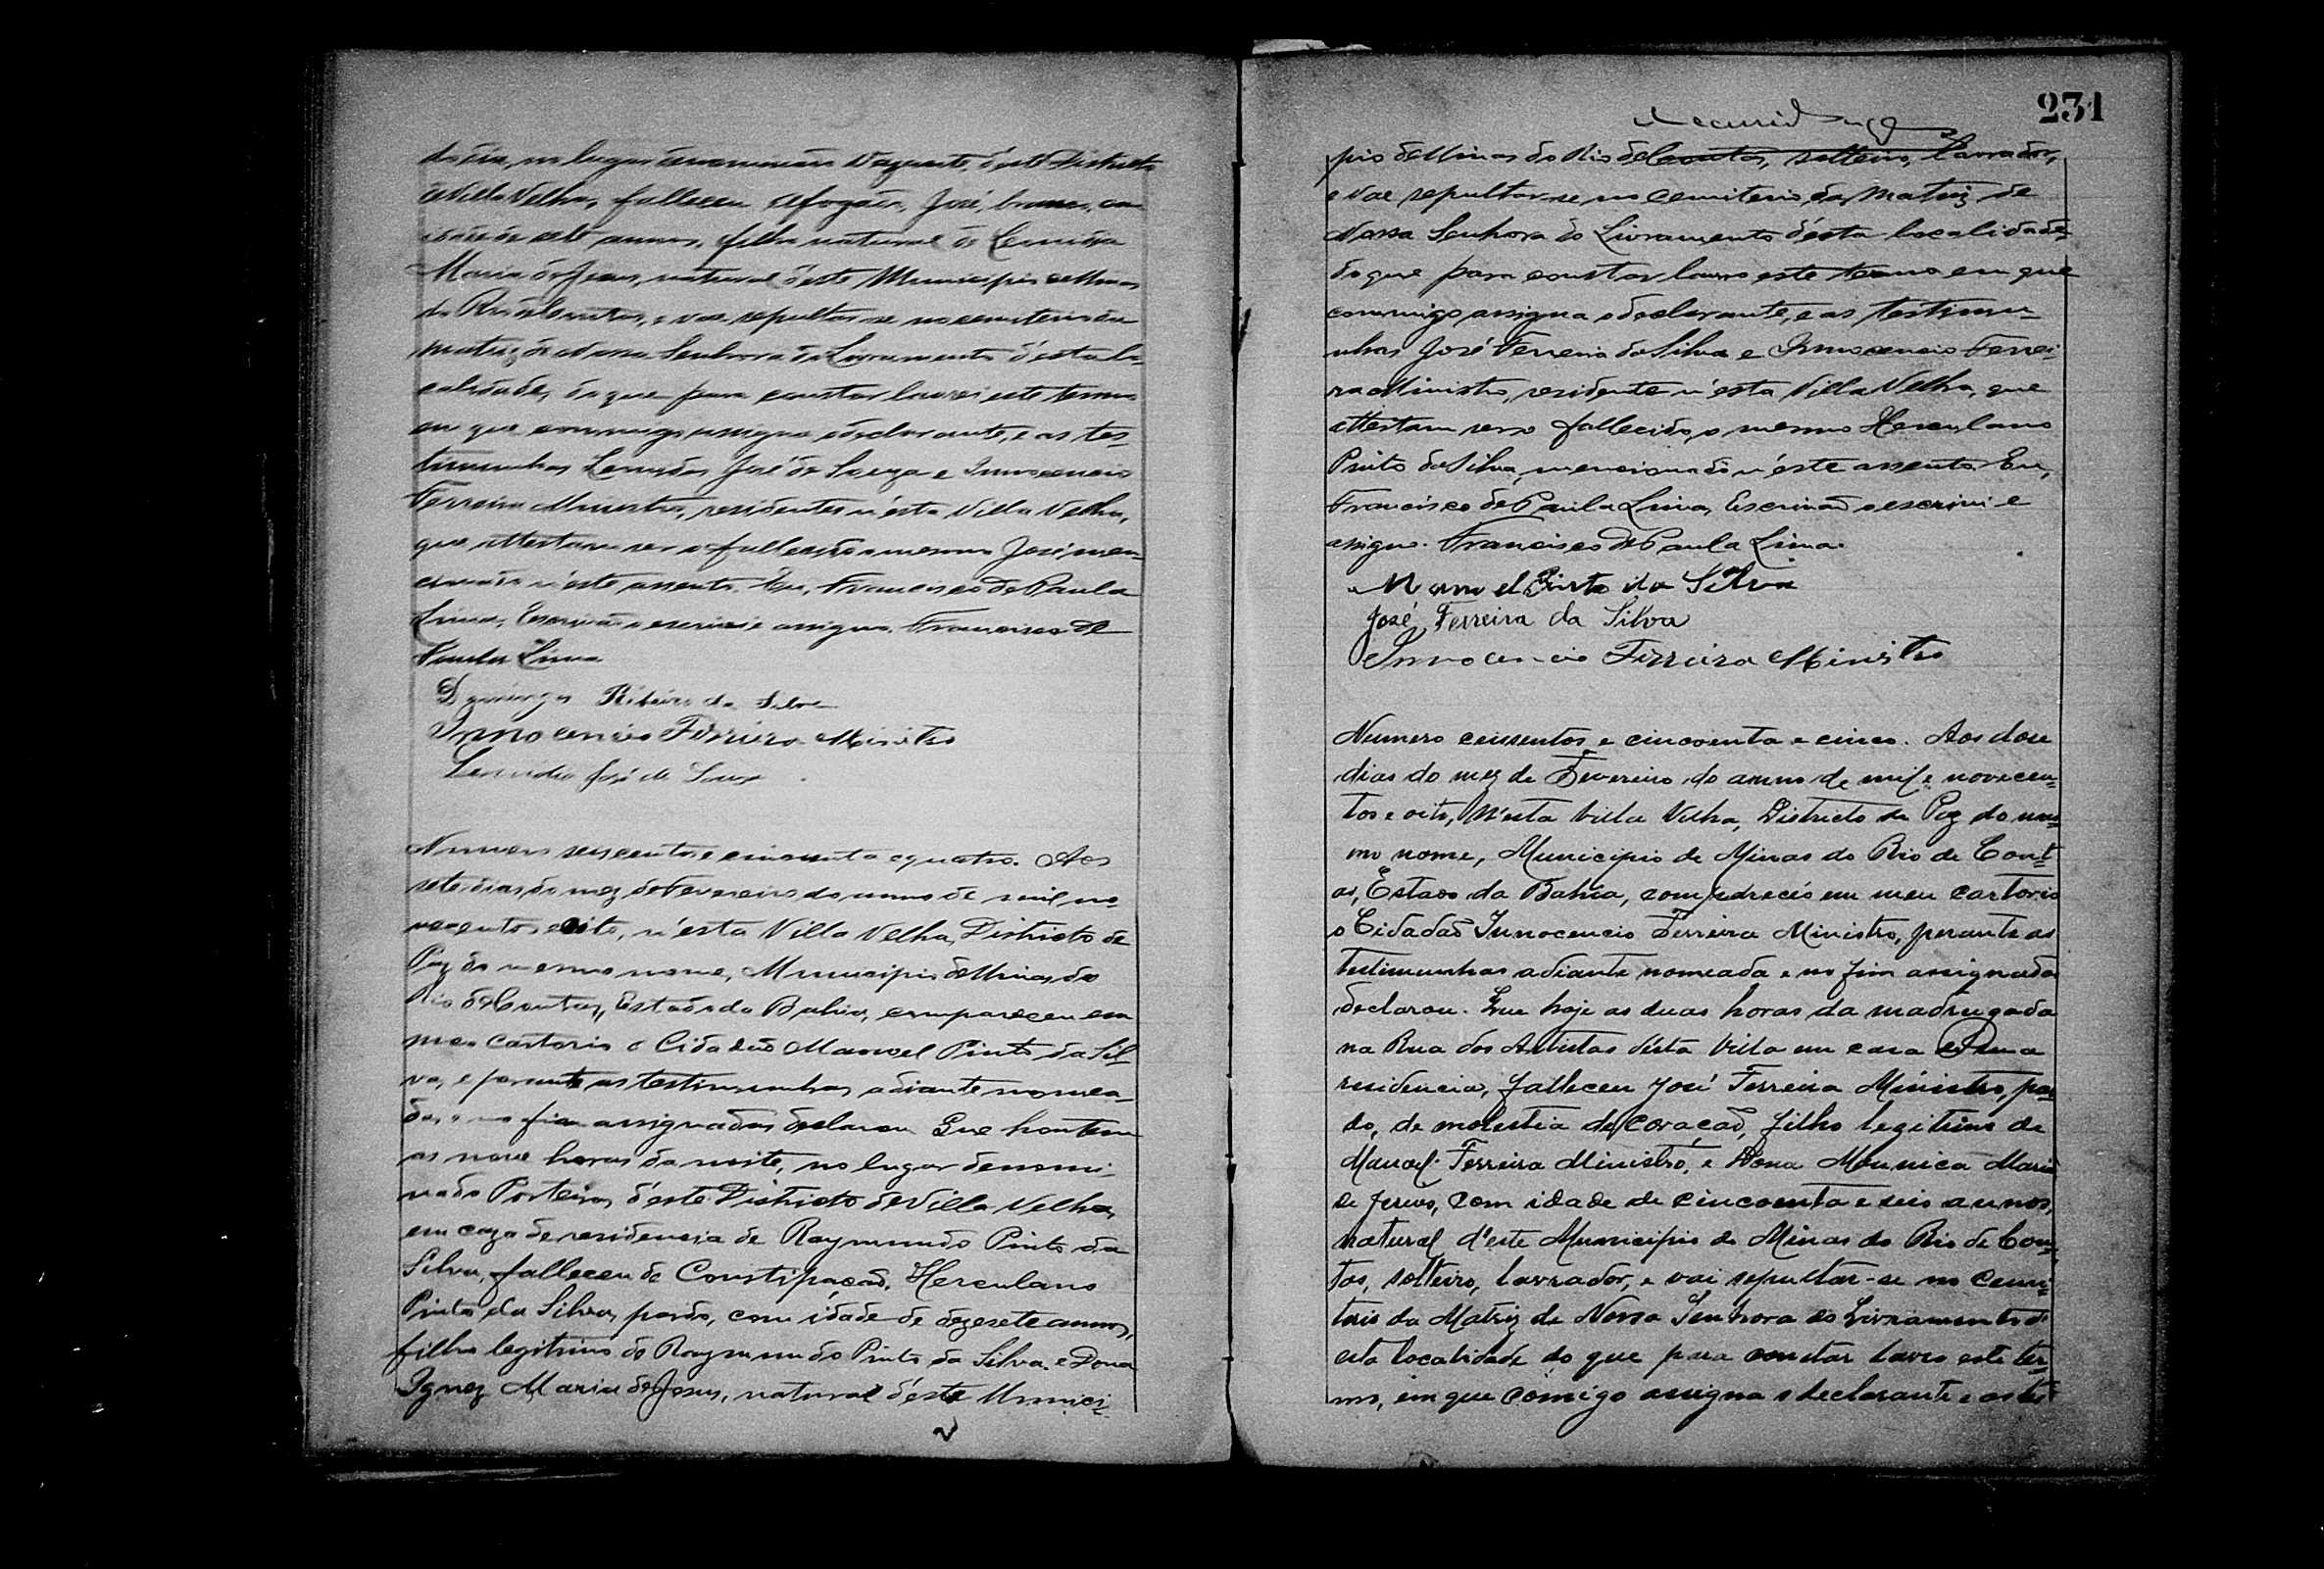 do dia, no lugar denominado Vazante, d'este Districto
de Villa Velha, falleceu afogado, José, branco, com
idade de sete annos, filho natural de Leonidia
Maria de Jesus, natural d'este Municipio de Minas
do Rio de Contas, e vae sepultar-se no cemiterio da
matriz de Nossa Senhora do Livramento d'esta lo-
calidade, do que para constar lavrei este termo
em que commigo assigna o declarante, e as tes-
timunhas Leonidio José de Souza e Innocencio
Ferreira Ministro, residentes n'esta Villa Velha,
que attestam ser o fallecido o mesmo José men-
cionado n'este assento. Eu, Francisco de Paula
Lima, Escrivão o escrivi e assigno. Francisco de
Paula Lima
Domingos Ribeiro da Silva
Innocencio Ferreira Ministro
Leonidio José de Souza
Numero seiscentos e cincoenta e quatro. Aos
sete dias do mez de Fevereiro do anno de mil no-
vecentos e oito, n'esta Villa Velha, Districto de
Paz do mesmo nome, Municipio de Minas do
Rio de Contas, Estado da Bahia, compareceu em
meu cartorio o Cidadão Manoel Pinto da Sil-
va, e perante as testimunhas adiante nomea-
das e no fim assignadas declarou Que hontem
as nove horas da noite, no lugar denomi-
nado Porteiras d'este Districto de Villa Velha,
em caza de residencia de Raymundo Pinto da
Silva, falleceu de Constipação, Herculano
Pinto da Silva, pardo, com idade de dezesete annos,
filho legitimo de Raymundo Pinto da Silva e Dona
Ignez Maria de Jesus, natural d'este Munici-
231
pio de Minas do Rio de Contas, solteiro, lavrador,
e vae sepultar-se no cemiterio da Matriz de
Nossa Senhora do Livramento d'esta localidade
do que para constar lavro este termo em que
commigo assigna o declarante, e as testimu-
nhas José Ferreira da Silva e Innocencio Ferrei-
ra Ministro, residente n'esta Villa Velha, que
attestam ser o fallecido, o mesmo Herculano
Pinto da Silva, mencionado n'este assento. Eu,
Francisco de Paula Lima, Escrivão o escrivi e
assigno. Francisco de Paula Lima.
Manoel Pinto da Silva
José Ferreira da Silva
Innocencio Ferreira Ministro
Numero ceissentos e cincoenta e cinco. Aos dose
dias do mez de Fevereiro do anno de mil e novecen-
tos e oito, N'esta Villa Velha, Districto de Paz do mes-
mo nome, Municipio de Minas do Rio de Cont-
as, Estado da Bahia, compareceo em meu cartorio
o Cidadão Innocencio Ferreira Ministro, perante as
testimunhas adiante nomeada e no fim assignadas
declarou. Que hoje as duas horas da madrugada
na Rua dos Artistas d'esta Villa em casa de sua
residencia, falleceu José Ferreira Ministro, par-
do, de molestia do coração, filho legitimo de
Manoel Ferreira Ministro, e Dona Mounica Maria
de Jesus, com idade de cincoenta e seis annos,
natural d'este Municipio de Minas do Rio de Con-
tas, solteiro, lavrador, e vai sepultar-se no cemi-
terio da Matriz de Nossa Senhora do Livramento d'
esta localidade do que para constar lavro este ter-
mo, em que comigo assigna o declarante e as tes-